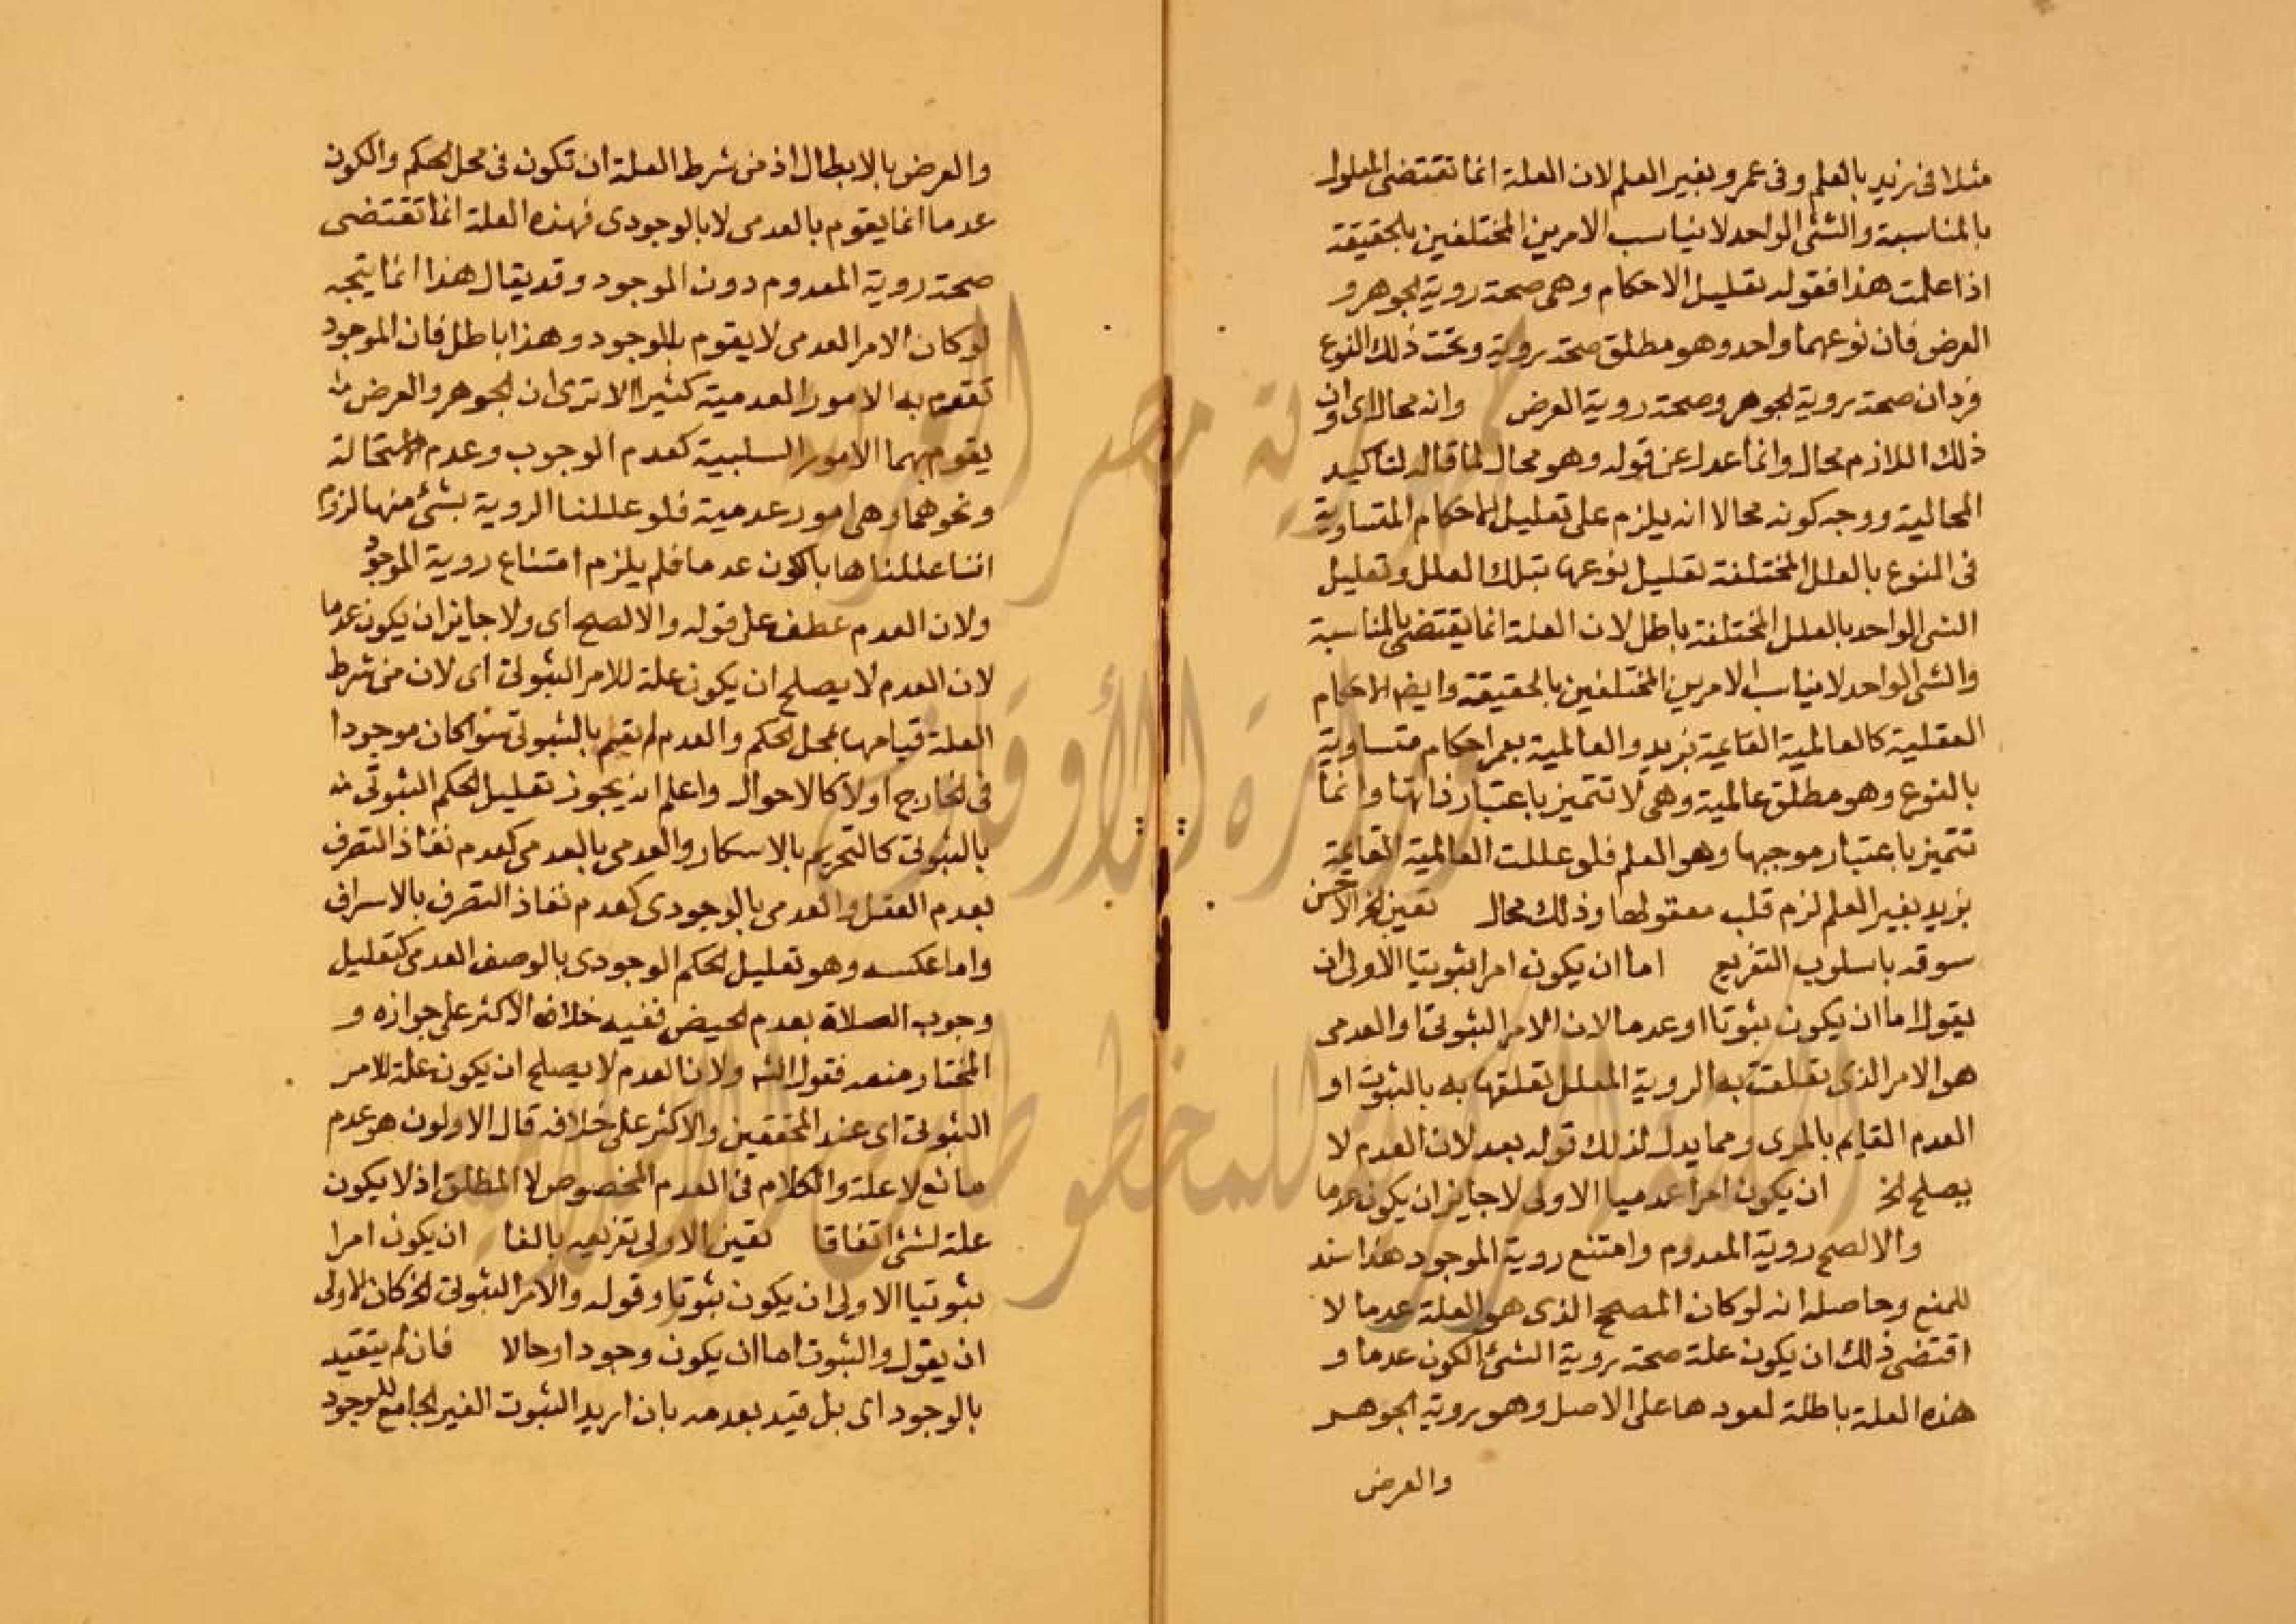 مثلا فى زيد بالعلم وفى عمرو بغير العلم لان العلة انما تقتضى المعلول
بالمناسبة والشئ الواحد لا يناسب الامرين المختلفين بالحقيقة
اذا علمت هذا فقوله تعليل الاحكام وهى صحة روية الجوهر و
العرض فان نوعهما واحد وهو مطلق صحة روية وتحت ذلك النوع
فردان صحة روية الجوهر وصحة روية العرض وانه محال اى وان
ذلك اللازم محال وانما عدل عن قوله وهو محال لما قاله لتاكيد
المحالية ووجه كونه محالا انه يلزم على تعليل الاحكام المتساوية
فى النوع بالعلل المختلفة تعليل نوعها بتلك العلل وتعليل
الشى الواحد بالعلل المختلفة باطل لان العلة انما يقتضى بالمناسبة
والشى الواحد لا يناسب الامرين المختلفين بالحقيقة وايض الاحكام
العقلية كالعالمية القائمة بزيد والعالمية بعمر احكام متساوية
بالنوع وهو مطلق عالمية وهى لا تتميز باعتبار ذاتها وانما
تتميز باعتبار موجبها وهو العلم فلو عللت العالمية القائمة
بزيد بغير العلم لزم قلب معقولها وذلك محال تعين الخ الاحسن
سوقه باسلوب التفريع اما ان يكون امرا ثبوتيا الاولى ان
يقول اما ان يكون ثبوتا او عدما لان الامر الثبوتى او العدمى
هو الامر الذى تعلقت به الروية المعلل تعلقها به بالثبوت او
العدم القايم بالمرى ومما يدل لذلك قوله بعد لان العدم لا
يصلح الخ ان يكون امرا عدميا الاولى لا جايز ان يكون عدما
والا لصح روية المعدوم وامتنع روية الموجود هذا سند
للمنع وحاصله انه لو كان المصحح الذى هو العلة عدما لا
اقتضى ذلك ان يكون علة صحة روية الشئ الكون عدما و
هذه العلة باطلة لعودها على الاصل وهو روية الجوهر
والعرض
والعرض بالابطال اذ من شرط العلة ان تكون فى محل الحكم والكون
عدما انما يقوم بالعدمى لا بالوجودى فهذه العلة انما تقتضى
صحة روية المعدوم دون الموجود وقد يقال هذا انما يتجه
لو كان الامر العدمى لا يقوم بالموجود وهذا باطل فان الموجود
تقوم به الامور العدمية كثيرا الا ترى ان الجوهر والعرض
يقوم بهما الامور السلبية كعدم الوجوب وعدم الاستحالة
ونحوهما وهى امور عدمية فلو عللنا الروية بشئ منها لزم
اننا عللناها بالكون عدما فلم يلزم امتناع روية الموجود
ولان العدم عطف على قوله والا لصح اى ولا جايز ان يكون عدما
لان العدم لا يصلح ان يكون علة للامر الثبوتى اى لان من شرط
العلة قيامها بمحل الحكم والعدم لم يقم بالثبوتى سوا كان موجودا
فى الخارج اولا كالاحوال واعلم انه يجوز تعليل الحكم الثبوتى
بالثبوتى كالتحريم بالاسكار والعدمى بالعدمى كعدم نفاذ التصرف
بعدم العقل والعدمى بالوجودى كعدم نفاذ التصرف بالاسراف
واما عكسه وهو تعليل الحكم الوجودى بالوصف العدمى كتعليل
وجوب الصلاة بعدم الحيض ففيه خلاف الاكثر على جوازه و
المختار منعه فقول الشه ولان العدم لا يصلح ان يكون علة للامر
الثبوتى اى عند المحققين والاكثر على خلافه قال الاولون هو عدم
مانع لا علة والكلام فى العدم المخصوص لا المطلق اذ لا يكون
علة لشئ اتفاقا تعين الاولى تفريعه بالفا ان يكون امرا
ثبوتيا الاولى ان يكون ثبوتا وقوله والامر الثبوتى الخ كان الاولى
ان يقول والثبوت اما ان يكون وجودا او حالا فان لم يتقيد
بالوجود اى بل قيد بعدمه بان اريد الثبوت الغير الجامع للوجود